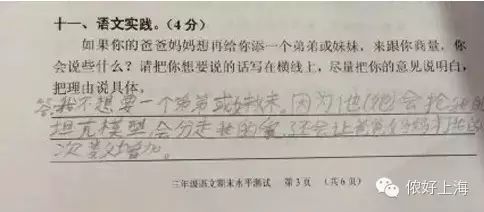 十一、语文实践。(4分)
如果你的爸爸妈妈想再给你添一个弟弟或妹妹，来跟你商量，你
会说些什么？请把你想要说的话写在横线上，尽量把你的意见说明白，
把理由说具体。
答我不想要一个弟弟或妹妹来。因为他(她)会抢我的
坦克模型，会分走我的爱，还会让爸爸(妈妈)打我的
次数增加。
三年级语文期末水平测试 第3页 (共6页)
侬好上海